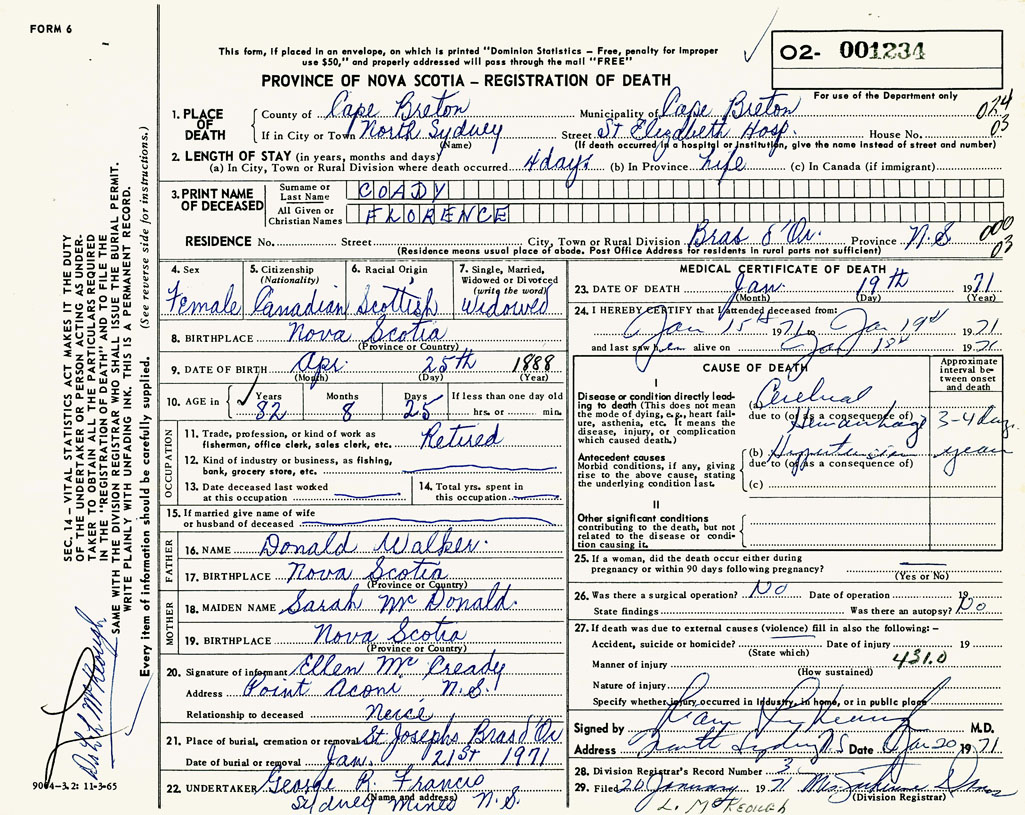 FORM 6
This form, if placed in an envelope, on which is printed "Dominion Statistics – Free, penalty for improper
use $50," and properly addressed will pass through the mail "FREE"
O2- 001234
For use of the Department only
PROVINCE OF NOVA SCOTIA – REGISTRATION OF DEATH
1. PLACE OF DEATH
County of Cape Breton Municipality of Cape Breton 024
If in City or Town North Sydney Street St Elizabeth Hosp. House No. 03
(Name) (If death occurred in a hospital or institution, give the name instead of street and number)
2. LENGTH OF STAY (in years, months and days)
(a) In City, Town or Rural Division where death occurred 4 days (b) In Province Life (c) In Canada (if immigrant)
3. PRINT NAME OF DECEASED
Surname or Last Name COADY
All Given or Christian Names FLORENCE
RESIDENCE No. Street City, Town or Rural Division Bras d'Or. Province N.S 000 03
(Residence means usual place of abode. Post Office Address for residents in rural parts not sufficient)
4. Sex Female
5. Citizenship (Nationality) Canadian
6. Racial Origin Scottish
7. Single, Married, Widowed or Divorced (write the word) Widowed
8. BIRTHPLACE Nova Scotia
(Province or Country)
9. DATE OF BIRTH Apr. 25th 1888
(Month) (Day) (Year)
10. AGE in Years 82 Months 8 Days 25 If less than one day old hrs. or min.
OCCUPATION
11. Trade, profession, or kind of work as fisherman, office clerk, sales clerk, etc. Retired
12. Kind of industry or business, as fishing, bank, grocery store, etc.
13. Date deceased last worked at this occupation
14. Total yrs. spent in this occupation
15. If married give name of wife or husband of deceased
FATHER
16. NAME Donald Walker.
17. BIRTHPLACE Nova Scotia
(Province or Country)
MOTHER
18. MAIDEN NAME Sarah McDonald.
19. BIRTHPLACE Nova Scotia
(Province or Country)
20. Signature of informant Ellen McCready
Address Point Aconi N.S.
Relationship to deceased Neice
21. Place of burial, cremation or removal St Josephs Bras d'Or
Date of burial or removal Jan. 21st 1971
22. UNDERTAKER George R. Francis
(Name and address)
Sydney Mines N.S.
MEDICAL CERTIFICATE OF DEATH
23. DATE OF DEATH Jan. 19th 1971
(Month) (Day) (Year)
24. I HEREBY CERTIFY that I attended deceased from:
Jan 15th 1971 to Jan 19th 1971
and last saw her alive on Jan 18th 1971
CAUSE OF DEATH
Approximate interval between onset and death
I
Disease or condition directly leading to death (This does not mean the mode of dying, e.g., heart failure, asthenia, etc. It means the disease, injury, or complication which caused death.)
(a) Cerebral
due to (or as a consequence of) Hemorrhage 3-4 days
Antecedent causes
Morbid conditions, if any, giving rise to the above cause, stating the underlying condition last.
(b) Hypertension years
due to (or as a consequence of)
(c)
II
Other significant conditions
contributing to the death, but not related to the disease or condition causing it.
25. If a woman, did the death occur either during
pregnancy or within 90 days following pregnancy?
(Yes or No)
26. Was there a surgical operation? No Date of operation 19
State findings Was there an autopsy? No
27. If death was due to external causes (violence) fill in also the following: –
Accident, suicide or homicide? Date of injury 19
(State which)
431.0
Manner of injury
(How sustained)
Nature of injury
Specify whether injury occurred in Industry, in home, or in public place
Signed by M.D.
Address North Sydney N.S Date Jan 20 1971
28. Division Registrar's Record Number 3
29. Filed 20 January 1971 Mrs
(Division Registrar)
L. McKEOUGH
SEC. 14 – VITAL STATISTICS ACT MAKES IT THE DUTY
OF THE UNDERTAKER OR PERSON ACTING AS UNDER-
TAKER TO OBTAIN ALL THE PARTICULARS REQUIRED
IN THE "REGISTRATION OF DEATH" AND TO FILE THE
SAME WITH THE DIVISION REGISTRAR WHO SHALL ISSUE THE BURIAL PERMIT.
WRITE PLAINLY WITH UNFADING INK. THIS IS A PERMANENT RECORD.
Every item of information should be carefully supplied. (See reverse side for instructions.)
McKeough
9004-3.2: 11-3-65